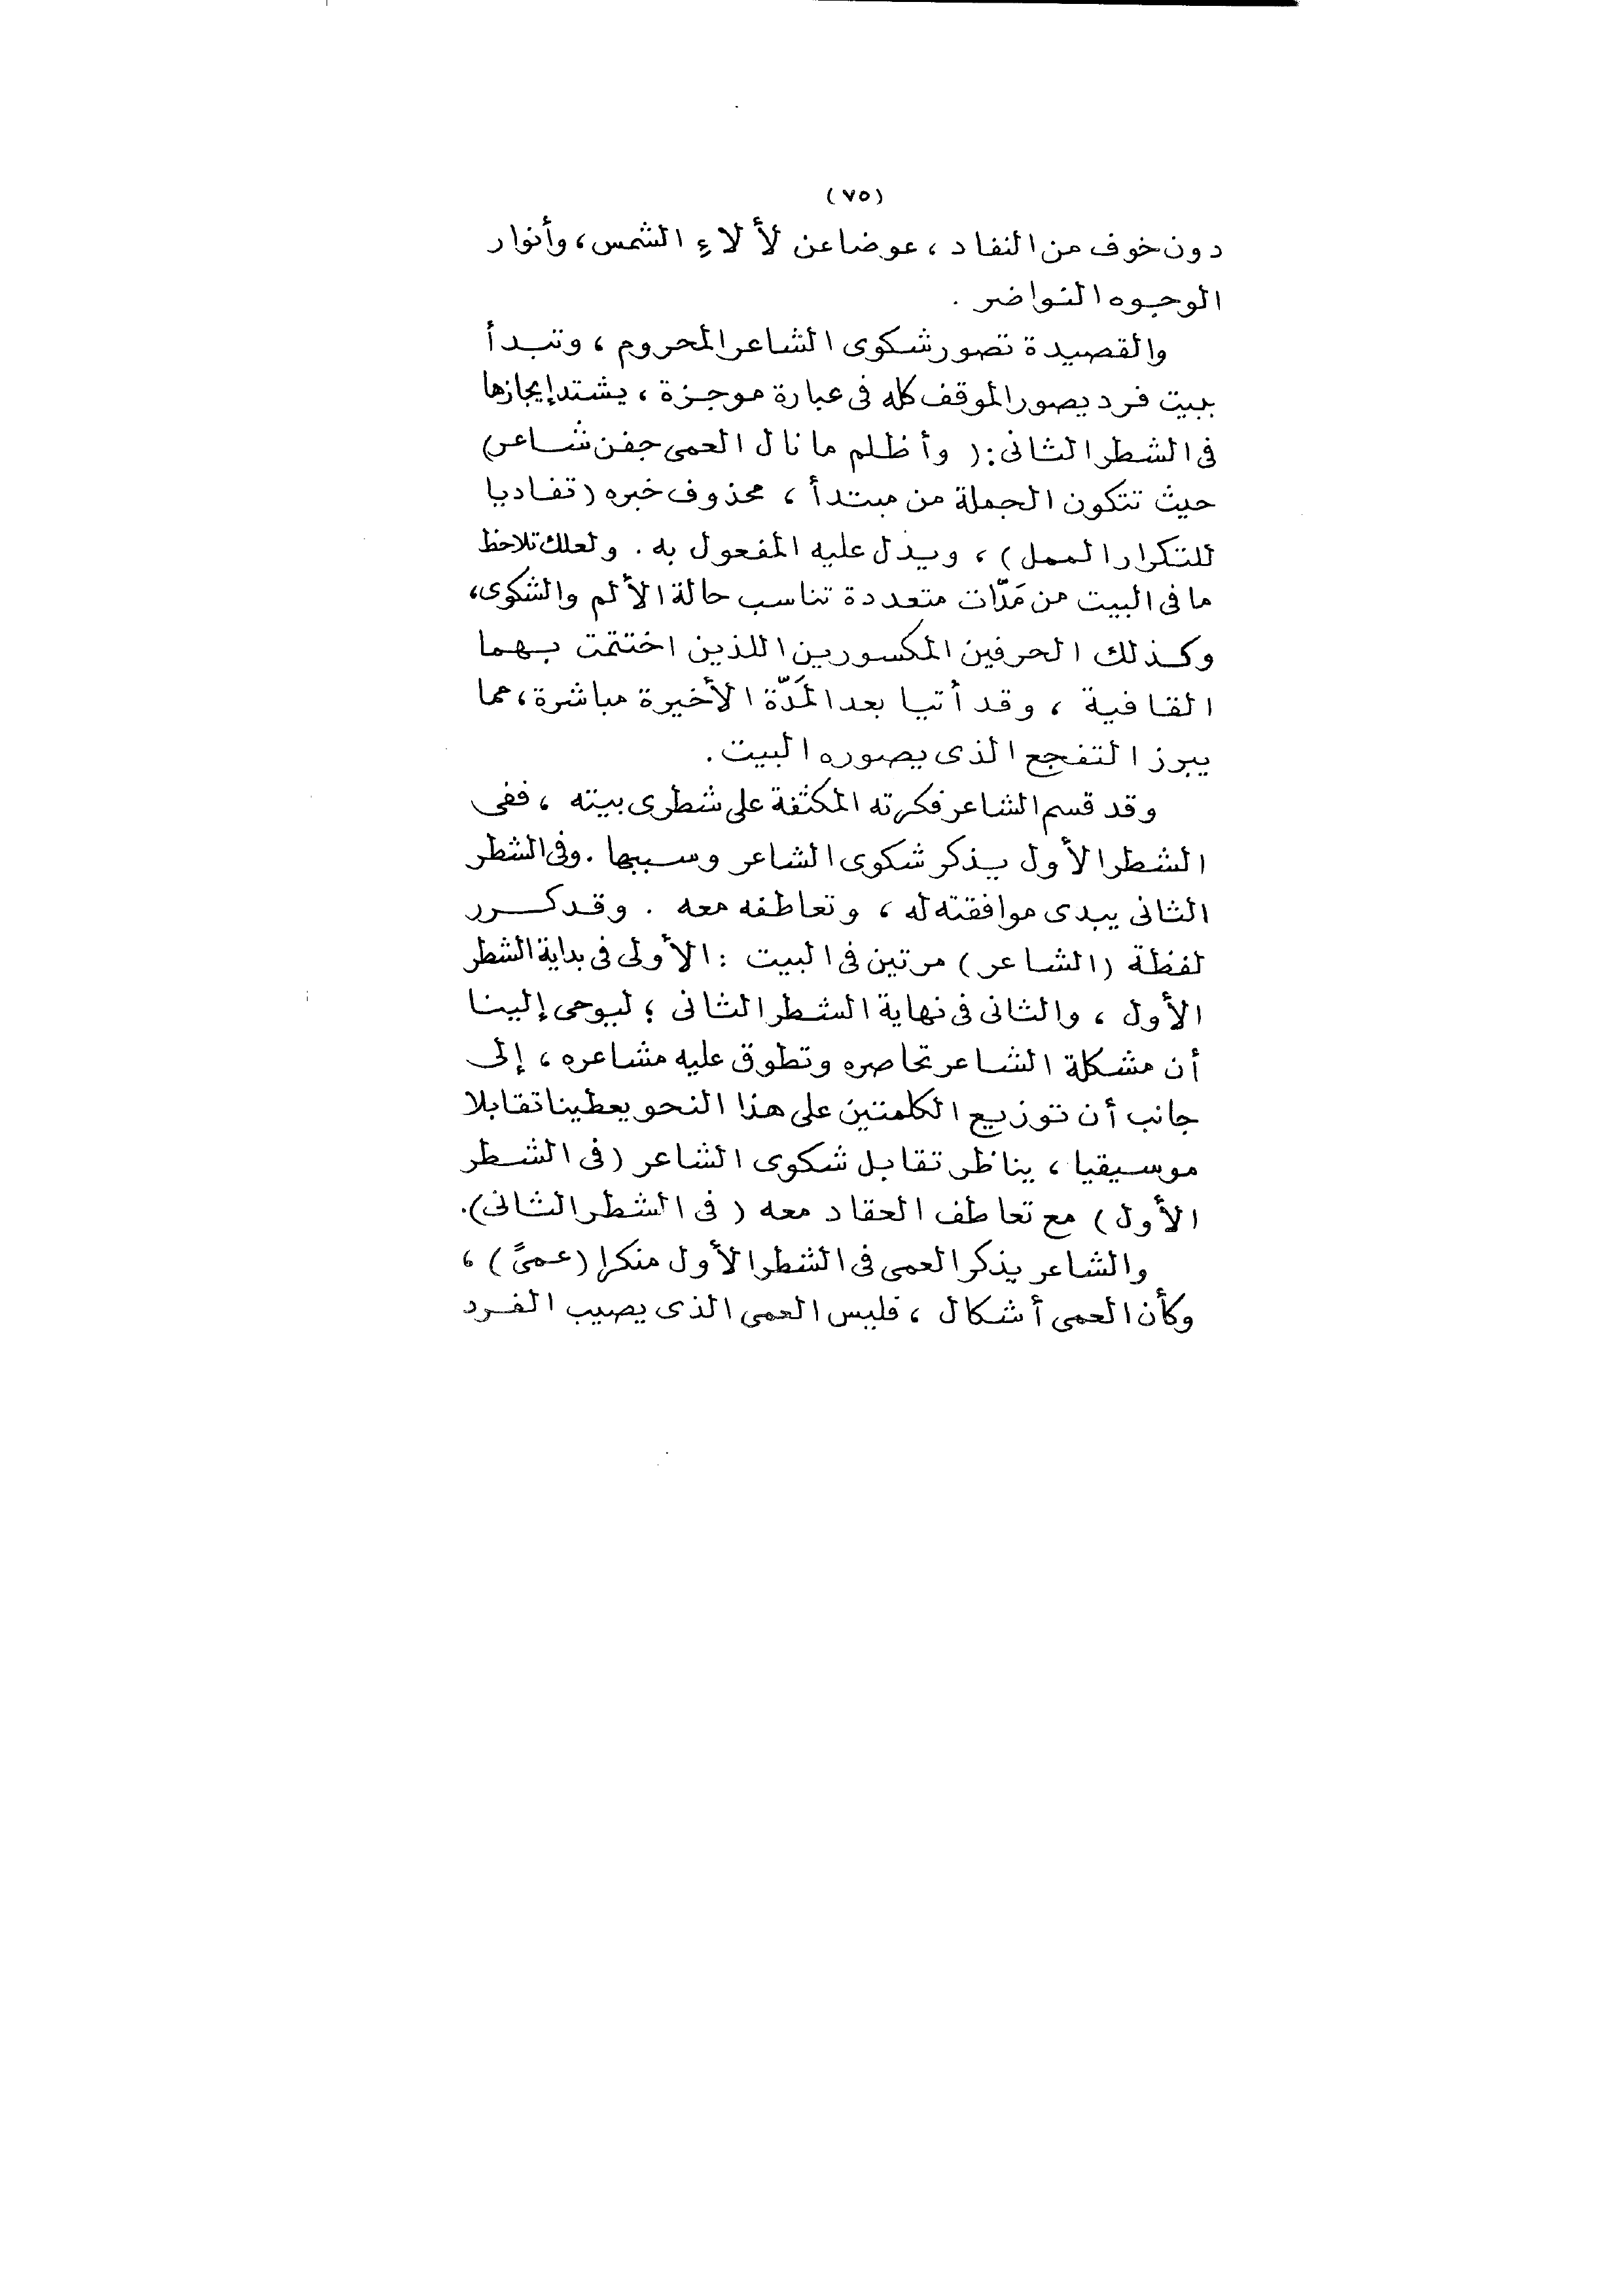 (٧٥)
دون خوف من النفاد ، عوضا عن لألاءِ الشمس، وأنوار
الوجوه النواضر .
والقصيدة تصور شكوى الشاعر المحروم ، وتبدأ
ببيت فرد يصور الموقف كله فى عبارة موجزة ، يشتد إيجازها
فى الشطر الثانى : ( وأظلم ما نال العمى جفن شاعر)
حيث تتكون الجملة من مبتدأ ، محذوف خبره (تفاديا
للتكرار الممل) ، ويدل عليه المفعول به . ولعلك تلاحظ
ما فى البيت من مَدّات متعددة تناسب حالة الألم والشكوى،
وكذلك الحرفين المكسورين اللذين اختتمت بهما
القافية ، وقد أتيا بعد المَدّة الأخيرة مباشرة، مما
يبرز التفجع الذى يصوره البيت.
وقد قسم الشاعر فكرته المكثفة على شطرى بيته ، ففى
الشطر الأول يذكر شكوى الشاعر وسببها . وفى الشطر
الثانى يبدى موافقته له ، وتعاطفه معه . وقد كرر
لفظة (الشاعر) مرتين فى البيت : الأولى فى بداية الشطر
الأول ، والثانى فى نهاية الشطر الثانى ؛ ليوحى إلينا
أن مشكلة الشاعر تحاصره وتطوق عليه مشاعره ، إلى
جانب أن توزيع الكلمتين على هذا النحو يعطينا تقابلا
موسيقيا ، يناظر تقابل شكوى الشاعر (فى الشطر
الأول) مع تعاطف العقاد معه ( فى الشطر الثانى).
والشاعر يذكر العمى فى الشطر الأول منكرا (عمىً) ،
وكأن العمى أشكال ، فليس العمى الذى يصيب الفرد